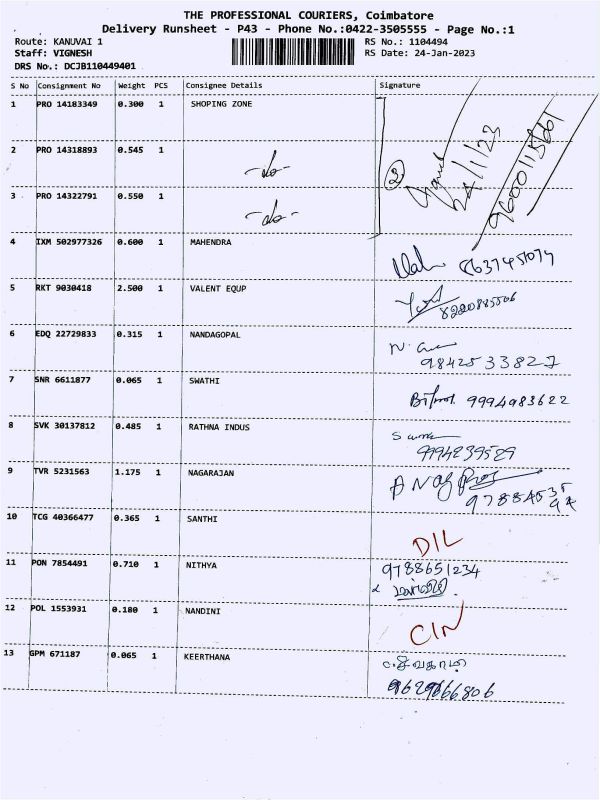 THE PROFESSIONAL COURIERS, Coimbatore
Delivery Runsheet - P43 - Phone No.:0422-3505555 - Page No.:1
Route: KANUVAI 1 RS No.: 1104494
Staff: VIGNESH RS Date: 24-Jan-2023
DRS No.: DCJB110449401
S No Consignment No Weight PCS Consignee Details Signature
1 PRO 14183349 0.300 1 SHOPING ZONE
24/1/23
2 PRO 14318893 0.545 1 -do- 2
3 PRO 14322791 0.550 1 -do-
4 IXM 502977326 0.600 1 MAHENDRA
5 RKT 9030418 2.500 1 VALENT EQUP
8220885506
6 EDQ 22729833 0.315 1 NANDAGOPAL
9842533827
7 SNR 6611877 0.065 1 SWATHI
9994983622
8 SVK 30137812 0.485 1 RATHNA INDUS
9994239529
9 TVR 5231563 1.175 1 NAGARAJAN
10 TCG 40366477 0.365 1 SANTHI
D/L
11 PON 7854491 0.710 1 NITHYA 9788651234
12 POL 1553931 0.180 1 NANDINI
C/N
13 GPM 671187 0.065 1 KEERTHANA
9629666806